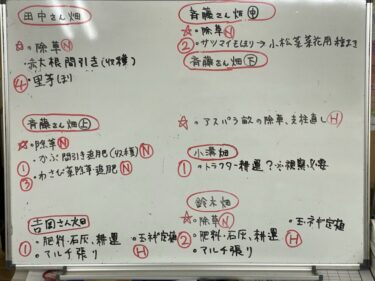 田中さん畑
☆◦除草 N
・大根間引き(収穫)
④里芋ほり
斉藤さん畑 中
☆◦除草 N
②サツマイモほり→小松菜菜花用種まき
斉藤さん畑 下
☆◦アスパラ畝の除草、支柱直し H
斉藤さん畑 上
☆◦除草 N
①◦かぶ間引き追肥(収穫) N
③◦わさび菜除草追肥 N
小溝畑
①◦トラクター耕運?
吉岡さん畑
①・肥料・石灰、耕運
・マルチ張り
・玉ネギ定植
H
鈴木畑
☆◦除草 N
②・肥料・石灰、耕運
・マルチ張り
・玉ネギ定植
H